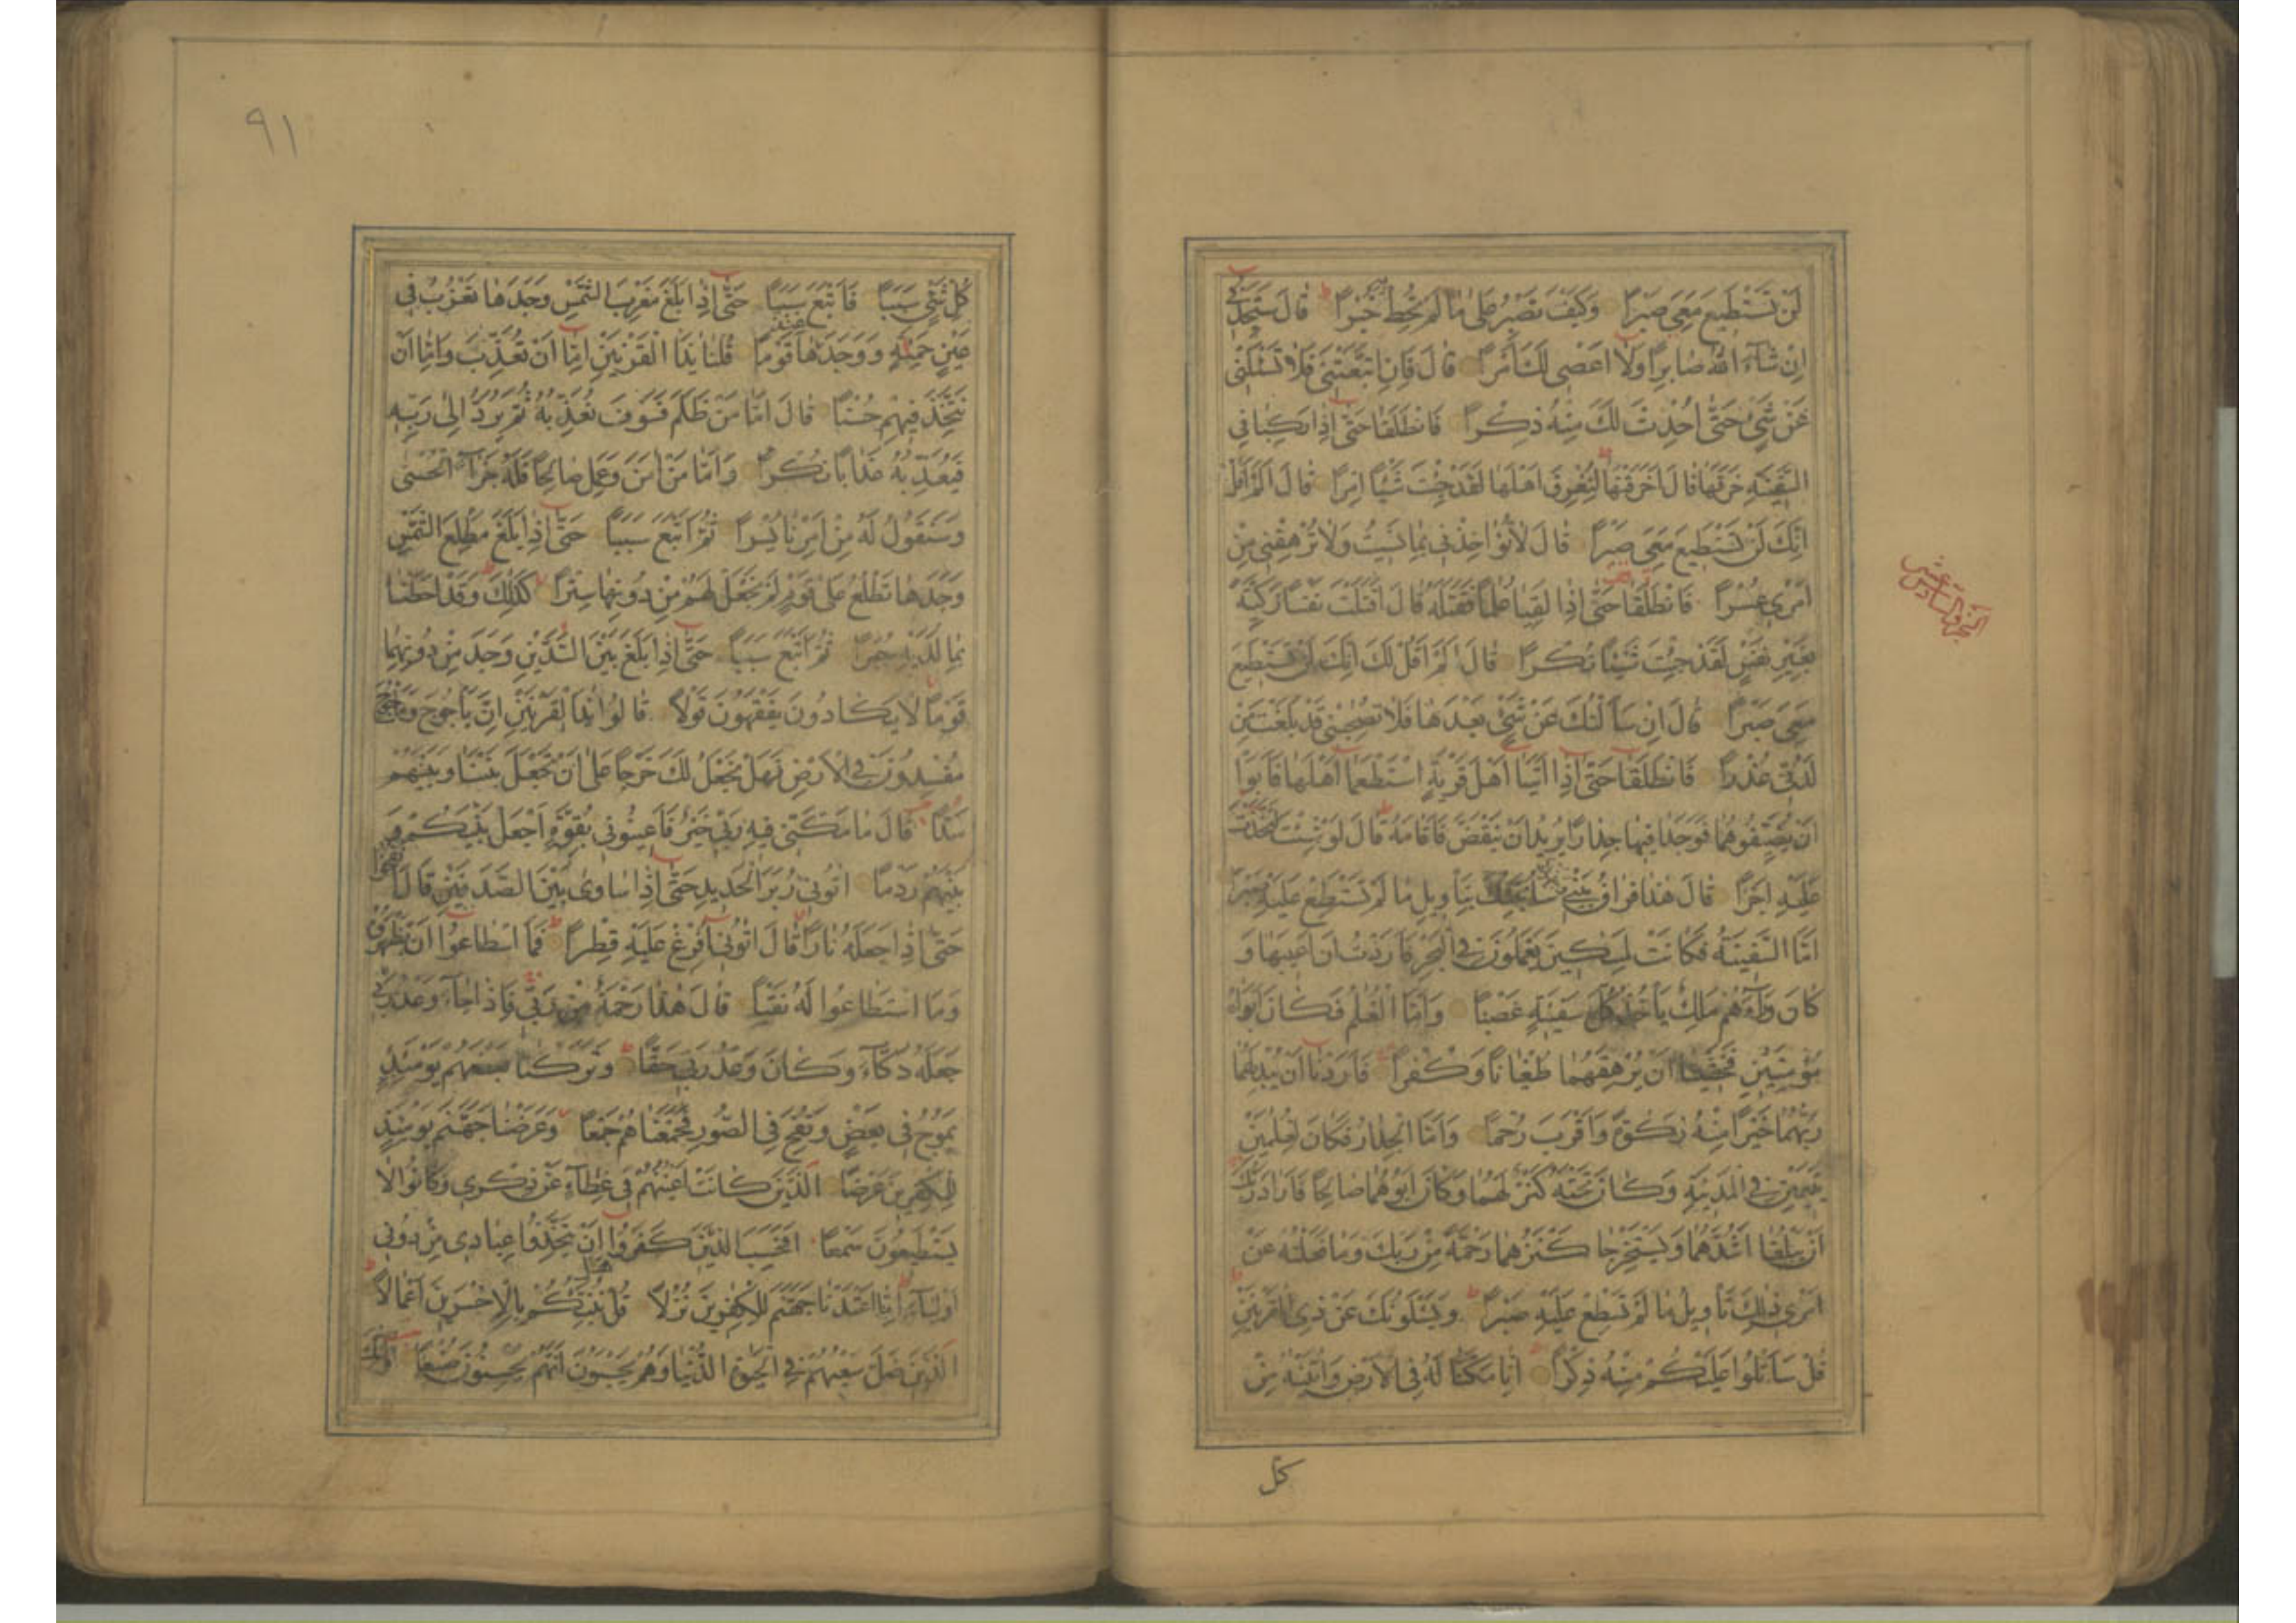 لَنْ تَسْتَطِيعَ مَعِيَ صَبْرًا وَكَيْفَ تَصْبِرُ عَلىٰ مَا لَمْ تُحِطْ بِهِ خُبْرًا قَالَ سَتَجِدُنِي
اِنْ شَآءَ اللّٰهُ صَابِرًا وَلَا اَعْصِي لَكَ اَمْرًا قَالَ فَاِنِ اتَّبَعْتَنِي فَلَا تَسْـَٔلْنِي
عَنْ شَيْءٍ حَتّٰى اُحْدِثَ لَكَ مِنْهُ ذِكْرًا فَانْطَلَقَا حَتّٰى اِذَا رَكِبَا فِي
السَّفِينَةِ خَرَقَهَا قَالَ اَخَرَقْتَهَا لِتُغْرِقَ اَهْلَهَا لَقَدْ جِئْتَ شَيْـًٔا اِمْرًا قَالَ اَلَمْ اَقُلْ
اِنَّكَ لَنْ تَسْتَطِيعَ مَعِيَ صَبْرًا قَالَ لَا تُؤَاخِذْنِي بِمَا نَسِيتُ وَلَا تُرْهِقْنِي مِنْ
اَمْرِي عُسْرًا فَانْطَلَقَا حَتّٰى اِذَا لَقِيَا غُلٰمًا فَقَتَلَهُ قَالَ اَقَتَلْتَ نَفْسًا زَكِيَّةً
بِغَيْرِ نَفْسٍ لَقَدْ جِئْتَ شَيْـًٔا نُكْرًا قَالَ اَلَمْ اَقُلْ لَكَ اِنَّكَ لَنْ تَسْتَطِيعَ
مَعِيَ صَبْرًا قَالَ اِنْ سَاَلْتُكَ عَنْ شَيْءٍ بَعْدَهَا فَلَا تُصٰحِبْنِي قَدْ بَلَغْتَ مِنْ
لَدُنِّي عُذْرًا فَانْطَلَقَا حَتّٰى اِذَا اَتَيَا اَهْلَ قَرْيَةٍ اسْتَطْعَمَا اَهْلَهَا فَاَبَوْا
اَنْ يُضَيِّفُوهُمَا فَوَجَدَا فِيهَا جِدَارًا يُرِيدُ اَنْ يَنْقَضَّ فَاَقَامَهُ قَالَ لَوْ شِئْتَ لَتَّخَذْتَ
عَلَيْهِ اَجْرًا قَالَ هٰذَا فِرَاقُ بَيْنِي سَاُنَبِّئُكَ بِتَاْوِيلِ مَا لَمْ تَسْتَطِعْ عَلَيْهِ صَبْرًا
اَمَّا السَّفِينَةُ فَكَانَتْ لِمَسٰكِينَ يَعْمَلُونَ فِي الْبَحْرِ فَاَرَدْتُ اَنْ اَعِيبَهَا وَ
كَانَ وَرَآءَهُمْ مَلِكٌ يَاْخُذُ كُلَّ سَفِينَةٍ غَصْبًا وَاَمَّا الْغُلٰمُ فَكَانَ اَبَوَاهُ
مُؤْمِنَيْنِ فَخَشِينَا اَنْ يُرْهِقَهُمَا طُغْيَانًا وَكُفْرًا فَاَرَدْنَا اَنْ يُبْدِلَهُمَا
رَبُّهُمَا خَيْرًا مِنْهُ زَكٰوةً وَاَقْرَبَ رُحْمًا وَاَمَّا الْجِدَارُ فَكَانَ لِغُلٰمَيْنِ
يَتِيمَيْنِ فِي الْمَدِينَةِ وَكَانَ تَحْتَهُ كَنْزٌ لَهُمَا وَكَانَ اَبُوهُمَا صَالِحًا فَاَرَادَ رَبُّكَ
اَنْ يَبْلُغَا اَشُدَّهُمَا وَيَسْتَخْرِجَا كَنْزَهُمَا رَحْمَةً مِنْ رَبِّكَ وَمَا فَعَلْتُهُ عَنْ
اَمْرِي ذٰلِكَ تَاْوِيلُ مَا لَمْ تَسْطِعْ عَلَيْهِ صَبْرًا وَيَسْـَٔلُونَكَ عَنْ ذِي الْقَرْنَيْنِ
قُلْ سَاَتْلُوا عَلَيْكُمْ مِنْهُ ذِكْرًا اِنَّا مَكَّنَّا لَهُ فِي الْاَرْضِ وَاٰتَيْنٰهُ مِنْ
كل
الجزؤ السادس عشر
٩١
كُلِّ شَيْءٍ سَبَبًا فَاَتْبَعَ سَبَبًا حَتّٰى اِذَا بَلَغَ مَغْرِبَ الشَّمْسِ وَجَدَهَا تَغْرُبُ فِي
عَيْنٍ حَمِئَةٍ وَوَجَدَ عِنْدَهَا قَوْمًا قُلْنَا يٰذَا الْقَرْنَيْنِ اِمَّا اَنْ تُعَذِّبَ وَاِمَّا اَنْ
تَتَّخِذَ فِيهِمْ حُسْنًا قَالَ اَمَّا مَنْ ظَلَمَ فَسَوْفَ نُعَذِّبُهُ ثُمَّ يُرَدُّ اِلىٰ رَبِّهِ
فَيُعَذِّبُهُ عَذَابًا نُكْرًا وَاَمَّا مَنْ اٰمَنَ وَعَمِلَ صَالِحًا فَلَهُ جَزَآءً الْحُسْنٰى
وَسَنَقُولُ لَهُ مِنْ اَمْرِنَا يُسْرًا ثُمَّ اَتْبَعَ سَبَبًا حَتّٰى اِذَا بَلَغَ مَطْلِعَ الشَّمْسِ
وَجَدَهَا تَطْلُعُ عَلىٰ قَوْمٍ لَمْ نَجْعَلْ لَهُمْ مِنْ دُونِهَا سِتْرًا كَذٰلِكَ وَقَدْ اَحَطْنَا
بِمَا لَدَيْهِ خُبْرًا ثُمَّ اَتْبَعَ سَبَبًا حَتّٰى اِذَا بَلَغَ بَيْنَ السَّدَّيْنِ وَجَدَ مِنْ دُونِهِمَا
قَوْمًا لَا يَكَادُونَ يَفْقَهُونَ قَوْلًا قَالُوا يٰذَا الْقَرْنَيْنِ اِنَّ يَاْجُوجَ وَمَاْجُوجَ
مُفْسِدُونَ فِي الْاَرْضِ فَهَلْ نَجْعَلُ لَكَ خَرْجًا عَلىٰ اَنْ تَجْعَلَ بَيْنَنَا وَبَيْنَهُمْ
سَدًّا قَالَ مَا مَكَّنِّي فِيهِ رَبِّي خَيْرٌ فَاَعِينُونِي بِقُوَّةٍ اَجْعَلْ بَيْنَكُمْ وَ
بَيْنَهُمْ رَدْمًا اٰتُونِي زُبَرَ الْحَدِيدِ حَتّٰى اِذَا سَاوٰى بَيْنَ الصَّدَفَيْنِ قَالَ انْفُخُوا
حَتّٰى اِذَا جَعَلَهُ نَارًا قَالَ اٰتُونِي اُفْرِغْ عَلَيْهِ قِطْرًا فَمَا اسْطَاعُوا اَنْ يَظْهَرُوهُ
وَمَا اسْتَطَاعُوا لَهُ نَقْبًا قَالَ هٰذَا رَحْمَةٌ مِنْ رَبِّي فَاِذَا جَآءَ وَعْدُ رَبِّي
جَعَلَهُ دَكَّآءَ وَكَانَ وَعْدُ رَبِّي حَقًّا وَتَرَكْنَا بَعْضَهُمْ يَوْمَئِذٍ
يَمُوجُ فِي بَعْضٍ وَنُفِخَ فِي الصُّورِ فَجَمَعْنَاهُمْ جَمْعًا وَعَرَضْنَا جَهَنَّمَ يَوْمَئِذٍ
لِلْكٰفِرِينَ عَرْضًا الَّذِينَ كَانَتْ اَعْيُنُهُمْ فِي غِطَآءٍ عَنْ ذِكْرِي وَكَانُوا لَا
يَسْتَطِيعُونَ سَمْعًا اَفَحَسِبَ الَّذِينَ كَفَرُوا اَنْ يَتَّخِذُوا عِبَادِي مِنْ دُونِي
اَوْلِيَآءَ اِنَّا اَعْتَدْنَا جَهَنَّمَ لِلْكٰفِرِينَ نُزُلًا قُلْ هَلْ نُنَبِّئُكُمْ بِالْاَخْسَرِينَ اَعْمَالًا
الَّذِينَ ضَلَّ سَعْيُهُمْ فِي الْحَيٰوةِ الدُّنْيَا وَهُمْ يَحْسَبُونَ اَنَّهُمْ يُحْسِنُونَ صُنْعًا اُولٰئِكَ